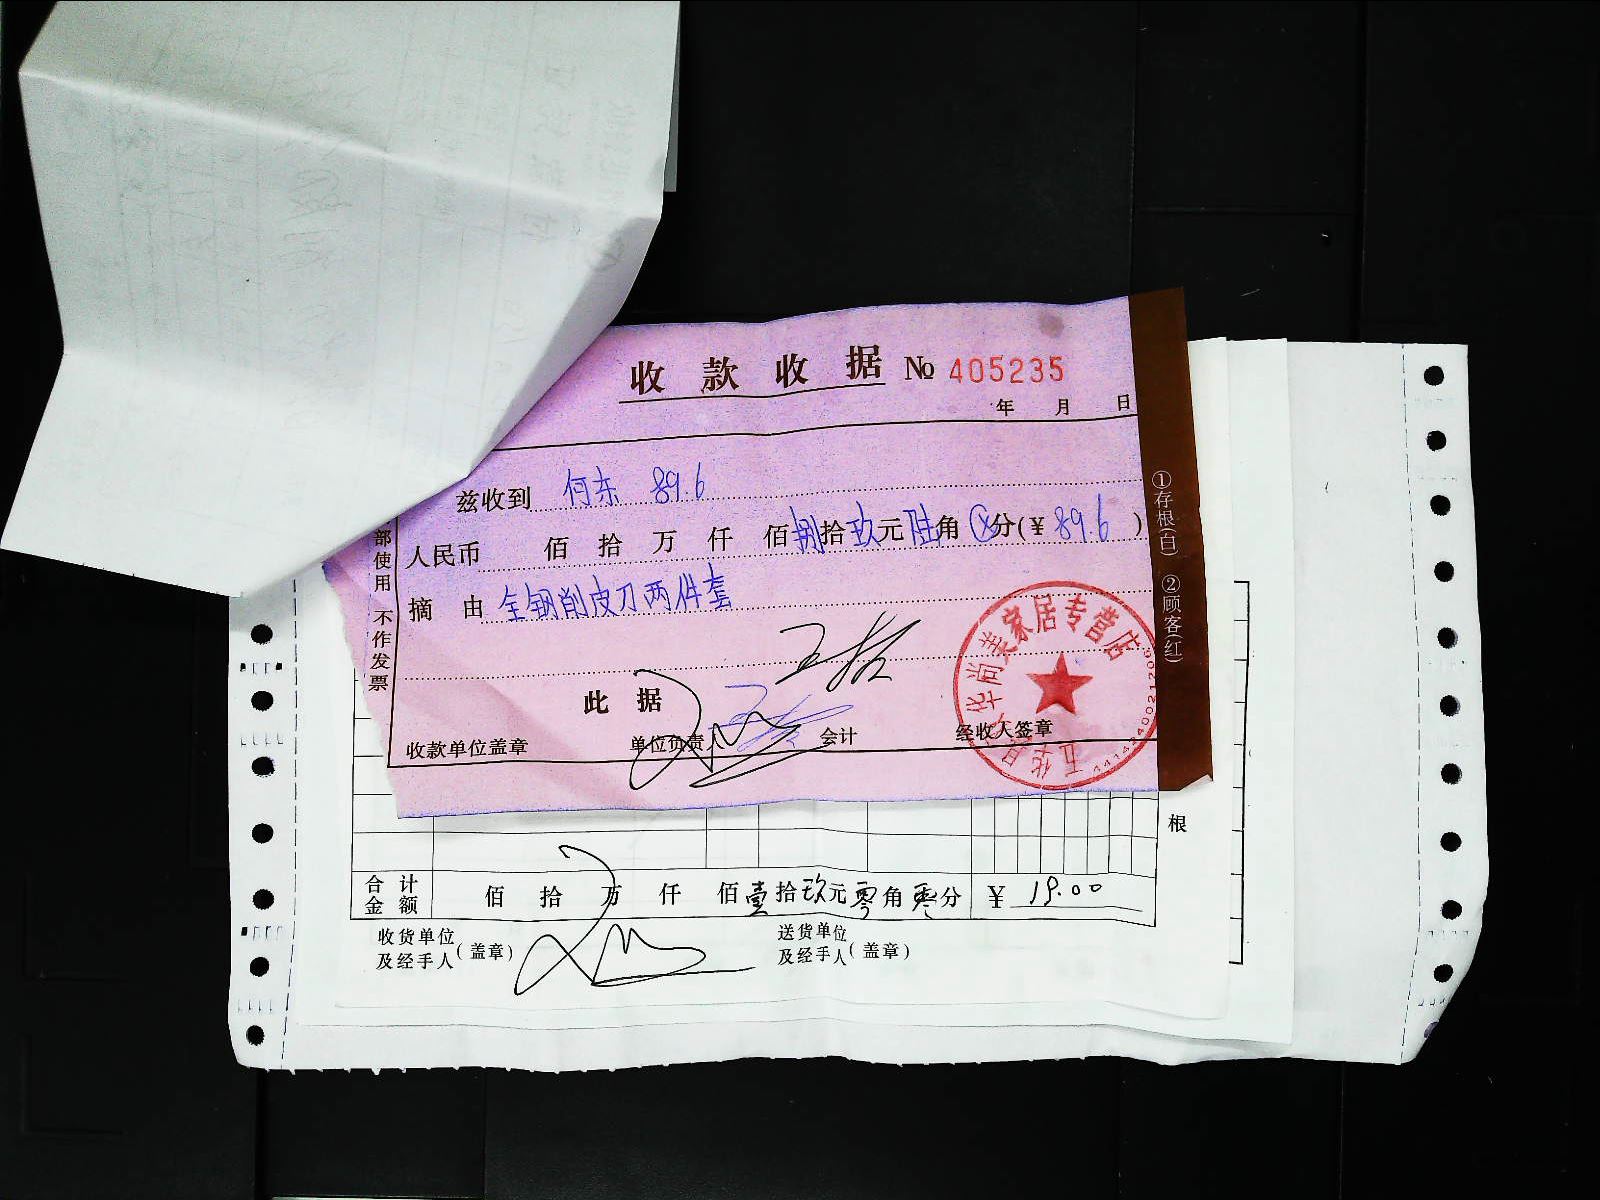 收款收据 № 405235
年 月 日
兹收到 何东 89.6
人民币 佰 拾 万 仟 佰捌拾玖元陆角⊗分(¥ 89.6 )
摘 由 全钢削皮刀两件套
此 据
收款单位盖章 单位负责 会计 经收人签章
部使用 不作发票
①存根(白) ②顾客(红)
尚美家居专营店
根
合计金额 佰 拾 万 仟 佰壹拾玖元零角零分 ¥ 19.00
收货单位及经手人(盖章) 送货单位及经手人(盖章)